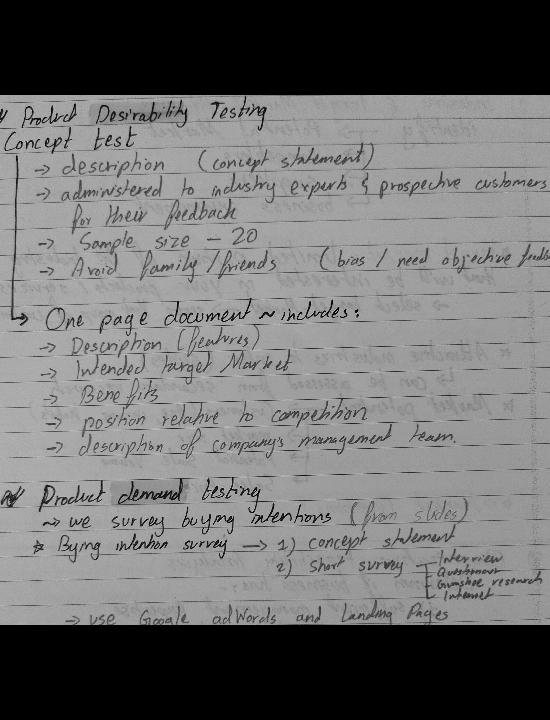 Product Desirability Testing
Concept test
→ description (concept statement)
→ administered to industry experts & prospective customers
for their feedback
→ Sample size – 20
→ Avoid family/friends (bias / need objective
→ One page document ~ includes:
→ Description (features)
→ Intended target Market
→ Benefits
→ position relative to competition
→ description of company's management team.
Product demand testing
→ we survey buying intentions (from slides)
* Bying intention survey → 1) concept statement
2) Short survey
Interview
Gumshoe research
Internet
→ use Google adWords and Landing Pages